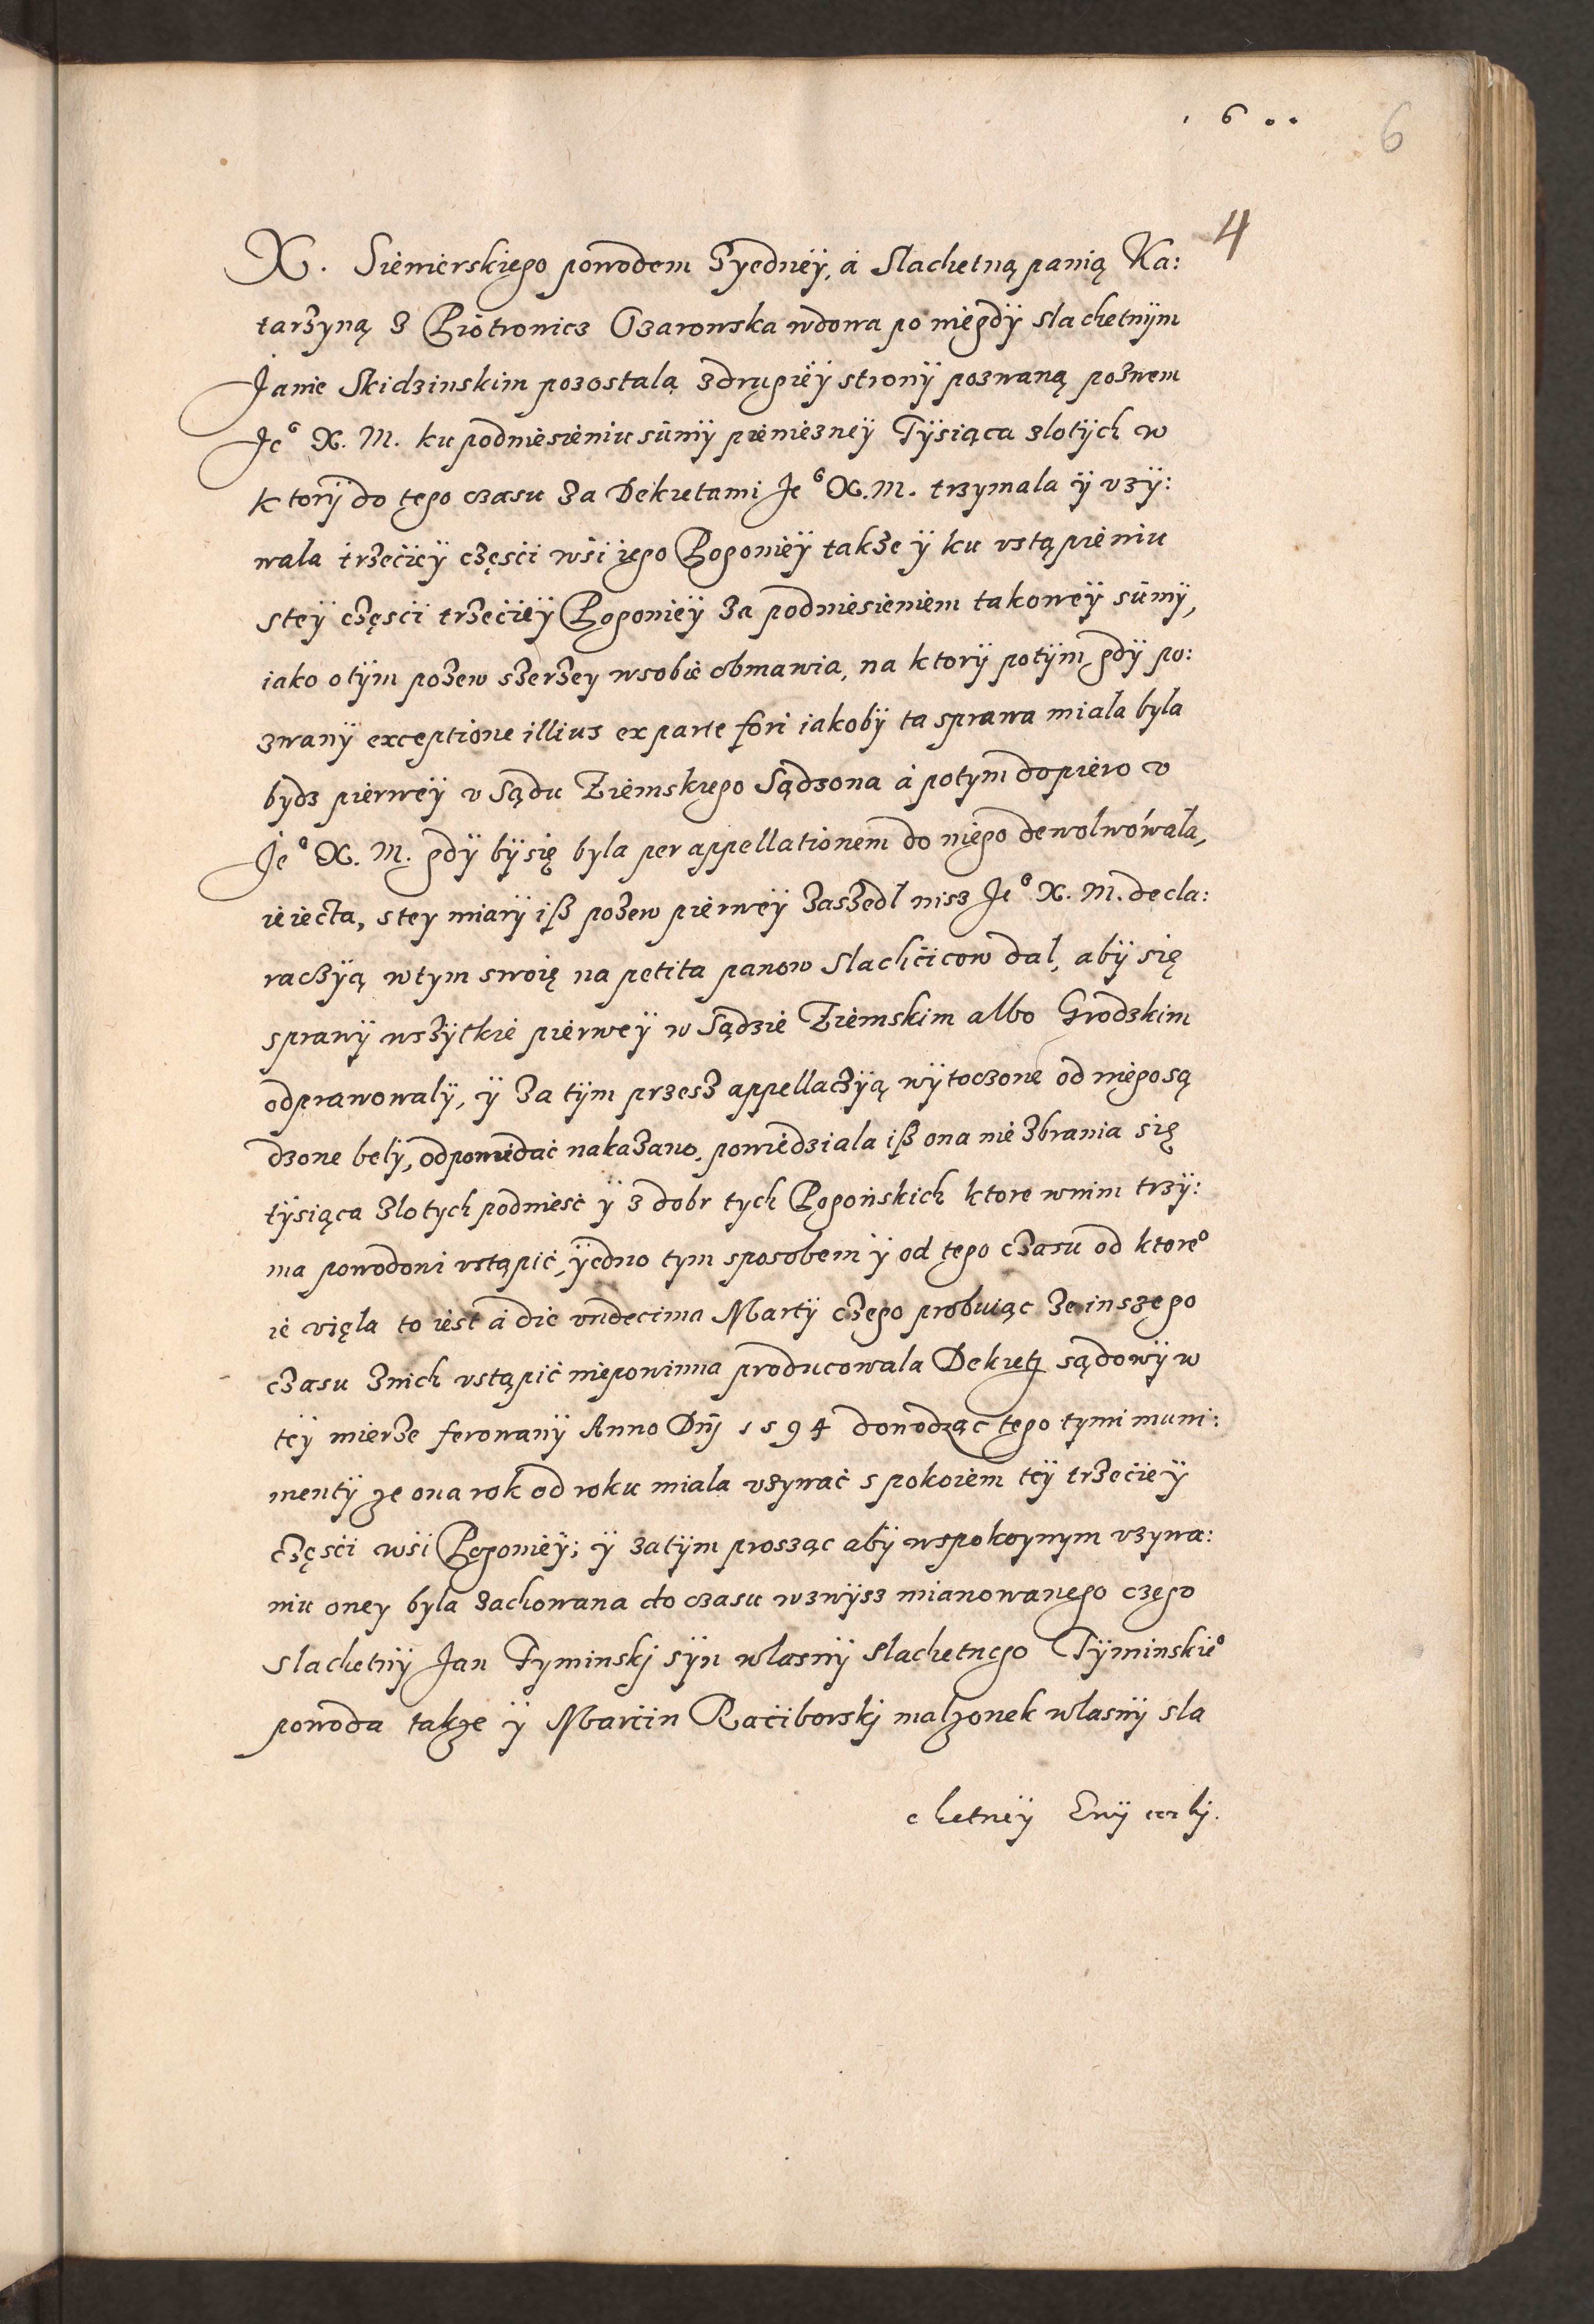 . 6 . .
6
4
X. Siewierskięgo powodem Zyednëy, á Slachetną panią Ka:
tarzyną z Piotrowicz Ozarowska wdowa po niegdÿ slachetnÿm
Janie Skidzinskim pozostalą zdrugiëy stronÿ pozwaną pozwem
Je⁰ X. M. ku podniesieniu sūmÿ pieniezneÿ Tÿsiąca zlotÿch w
ktorÿ do tęgo czasu za Dekretami Je⁰ X. M. trzymala ÿ vzÿ:
wala trzećieÿ częsći wśi iego Rogonieÿ takze ÿ ku vstąpieniu
steÿ częsći trzećieÿ Rogonieÿ za podniesieniem takoweÿ sūmÿ,
iako otÿm pozew szerzey wsobie obmawia, na ktorÿ potÿm gdÿ po:
zwanÿ exceptione illius ex parte fori iakobÿ ta sprawa miala byla
bydz pierweÿ v Sądu Ziemskiego Sądzona á potym dopiero v
Je⁰ X. M. gdÿ bÿ się byla per appellationem do niego dewolwówala,
ieiecta, stey miarÿ iß pozew pierweÿ zaszedl nisz Je⁰ X. M. decla:
raczÿą wtym swoię na petita panow Slachćicow dal, abÿ się
sprawÿ wszÿtkie pierweÿ w Sądzie Ziemskim albo Grodzkim
odprawowalÿ, ÿ za tÿm przesz appellaczÿą wÿtoczone od niego są
dzone belÿ, odpowiedać nakazano, powiedziala iß ona nie zbrania się
tÿsiąca zlotych podniesć ÿ z dobr tych Rogońskich ktore wnim trzÿ:
ma powodowi vstąpić, ÿedno tym sposobem ÿ od tęgo czasu od ktore⁰
ie vięla to iest á die vndecima Martÿ częgo probuiąc ze inszęgo
czasu znich vstąpić niepowinna producowala Dekret sądowÿ w
teÿ mierze ferowanÿ Anno Dnj 1594 dowodząc tęgo tymi muni:
mentÿ ze ona rok od roku miala vzywać s pokoiem teÿ trzećieÿ
częsći wśi Rogonieÿ; ÿ zatÿm prosząc abÿ wspokoynym vzywa:
niu oney byla zachowana do czasu wzwÿsz mianowanęgo częgo
slachetnÿ Jan Tyminskj sÿn wlasnÿ slachetnego Tÿminskie⁰
powoda takze ÿ Marćin Raćiborskj malzonek wlasnÿ sla
chetneÿ